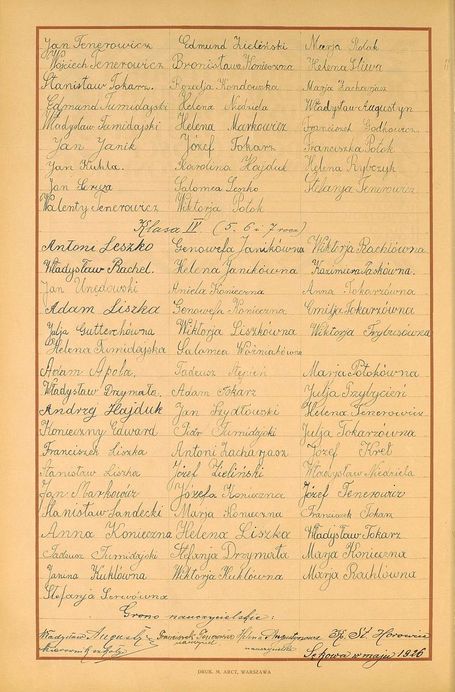 Jan Tenerowicz Edmund Zieliński Marja Polak
Wojciech Tenerowicz Bronisława Konieczna Helena Śliwa
Stanisław Tokarz. Rozalja Kondowska Marja Zacharjasz
Edmund Tumidajski Helena Niedziela Władysław Augustyn
Władysław Tumidajski Helena Markowicz Franciszek Godkowicz
Jan Janik Józef Tokarz Franciszka Potok
Jan Kukla. Karolina Hajduk Helena Rybczyk
Jan Salomea Leszko Stefanja Tenerowicz
Walenty Tenerowicz Wiktorja Potok
Klasa IV (5. 6 i 7 rocz)
Antoni Leszko Genowefa Janikówna Wiktorja Rachlówna
Władysław Rachel. Helena Janikówna Kazimiera
Jan Unędowski Aniela Konieczna Anna Tokarzówna
Adam Liszka Genowefa Konieczna Emilja Tokarzówna
Julja Gutterchówna Wiktorja Liszkówna Wiktorja Trybusówna
Helena Tumidajska Salomea Woźniakówna
Adam Apola, Tadeusz Stępień Maria Potokówna
Władysław Drzymała. Adam Tokarz Julja Przybycień
Andrzej Hajduk Jan Szydłowski Helena Tenerowicz
Konieczny Edward Piotr Tumidajski Julja Tokarzówna
Franciszek Liszka Antoni Zacharjasz Józef Kret
Stanisław Liszka Józef Zieliński Władysław Niedziela
Jan Markowicz Józefa Konieczna Józef Tenerowicz
Stanisław Sandecki Marja Konieczna Franciszek Tokarz
Anna Konieczna Helena Liszka Władysław Tokarz
Tadeusz Tumidajski Stefanja Drzymała Marja Konieczna
Janina Kuklówna Wiktorja Kuklówna Marja Rachlówna
Stefanja Serwówna
Grono nauczycielskie:
Władysław Augustyn Franciszek Helena Augustynowa Kp. St. Horowicz
kierownik szkoły nauczyciel nauczycielka Sękowa w maju 1926
DRUK. M. ARCT, WARSZAWA